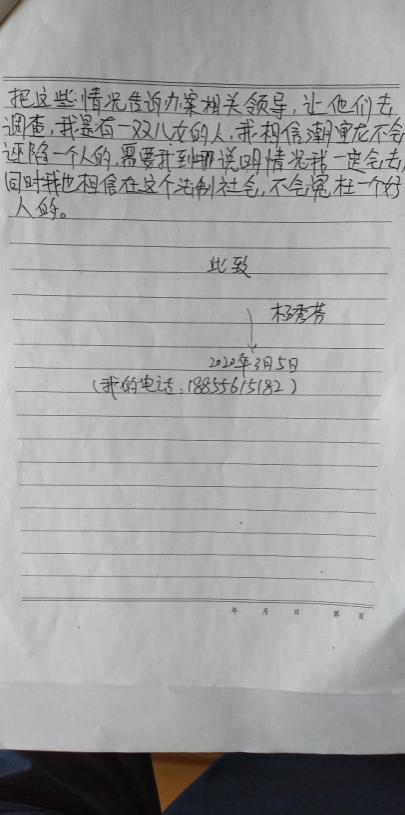 把这些情况告诉办案相关领导，让他们去
调查，我是有一双儿女的人，我相信潮重龙不会
诬陷一个人的，需要我到哪说明情况我一定会去，
同时我也相信在这个法制社会，不会冤枉一个好
人的。
此致
杨秀芳
2020年3月5日
（我的电话：18855615182）
年 月 日 第 页